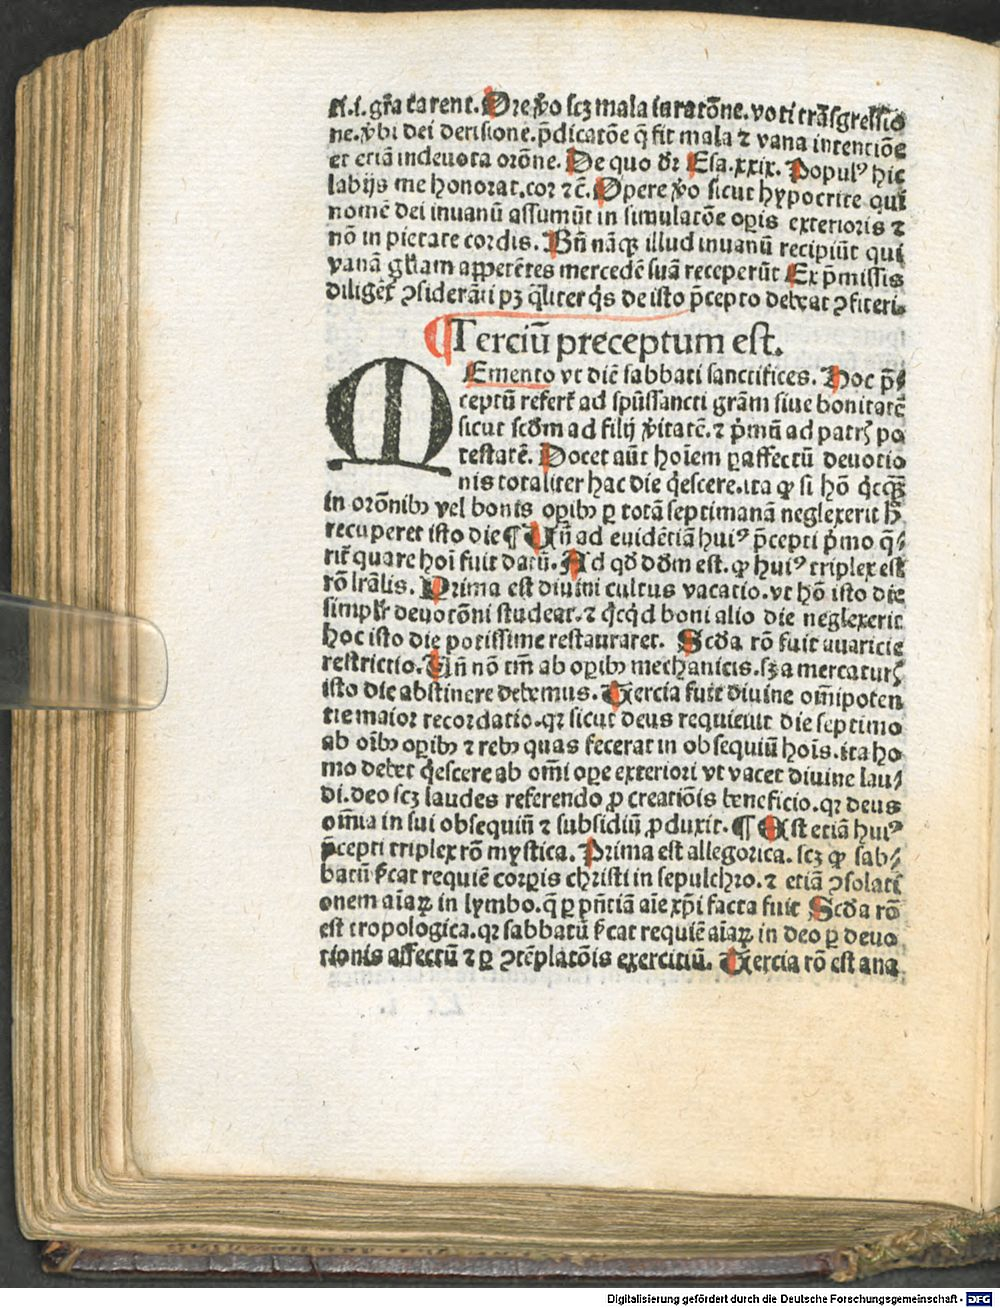 ti.i. gr̃a carent. Ore ꝟo scꝫ mala iuratõne. voti trãsgressio
ne. ꝟbi dei derisione. p̃dicatõe q̃ fit mala ⁊ vana intentiõe
et etiã indeuota orõne. De quo dr̃ Esa. xxix. Populꝰ hic
labijs me honorat. cor ⁊c̃. Opere ꝟo sicut hypocrite qui
nomẽ dei inuanũ assumũt in simulatõe oꝑis exterioris ⁊
nõ in pietate cordis. Bñ nãqꝫ illud inuanũ recipiũt qui
vanã gl̃iam appetẽtes mercedẽ suã receperũt Ex p̃missis
diligẽt̃ ꝯsiderãti pꝫ q̃liter q̇s de isto p̃cepto debeat ꝯfiteri.
¶ Terciũ preceptum est.
MEmento vt diẽ sabbati sanctifices. Hoc p̃⸗
ceptũ refert̃ ad sp̃ũssancti grãm siue bonitatẽ
sicut scd̃m ad filij ꝟitatẽ. ⁊ ṗmũ ad patrꝭ po
testatẽ. Docet aũt hoĩem ꝑ affectũ deuotio
nis totaliter hac die q̇escere. ita ꝙ si hõ q̇cq̃ꝫ
in orõnibꝫ vel bonis oꝑibꝫ ꝑ totã septimanã neglexerit h̃
recuperet isto die ¶ Uñ ad euidẽtiã huiꝰ p̃cepti ṗmo q̃⸗
rit̃ quare hoĩ fuit datũ. Ad qd̃ dd̃m est. ꝙ huiꝰ triplex est
rõ lr̃alis. Prima est diuini cultus vacatio. vt hõ isto die
simpl̃r deuotõni studeat. ⁊ q̇cq̇d boni alio die neglexerit
hoc isto die potissime restauraret. Scd̃a rõ fuit auaricie
restrictio. Uñ nõ tm̃ ab oꝑibꝫ mechanicis. sꝫ a mercaturꝭ
isto die abstinere debemus. Tercia fuit diuine om̃ipoten
tie maior recordatio. qꝛ sicut deus requieuit die septimo
ab oĩbꝫ oꝑibꝫ ⁊ rebꝫ quas fecerat in obsequiũ hoĩs. ita ho
mo debet q̇escere ab om̃i oꝑe exteriori vt vacet diuine lau⸗
di. deo scꝫ laudes referendo ꝓ creatiõis beneficio. qꝛ deus
om̃ia in sui obsequiũ ⁊ subsidiũ ꝓduxit. ¶ Est etiã huiꝰ
p̃cepti triplex rõ mystica. Prima est allegorica. scꝫ ꝙ sab⸗
batũ sͥcat requiẽ corꝑis christi in sepulchro. ⁊ etiã ꝯsolati
onem aĩaꝝ in lymbo. q̃ ꝑ pñtiã aĩe xp̃i facta fuit Scd̃a rõ
est tropologica. qꝛ sabbatũ sͥcat requiẽ aĩaꝝ in deo ꝑ deuo
tionis affectũ ⁊ ꝑ ꝯtẽplatõis exercitiũ. Tercia rõ est ana
Digitalisierung gefördert durch die Deutsche Forschungsgemeinschaft - DFG